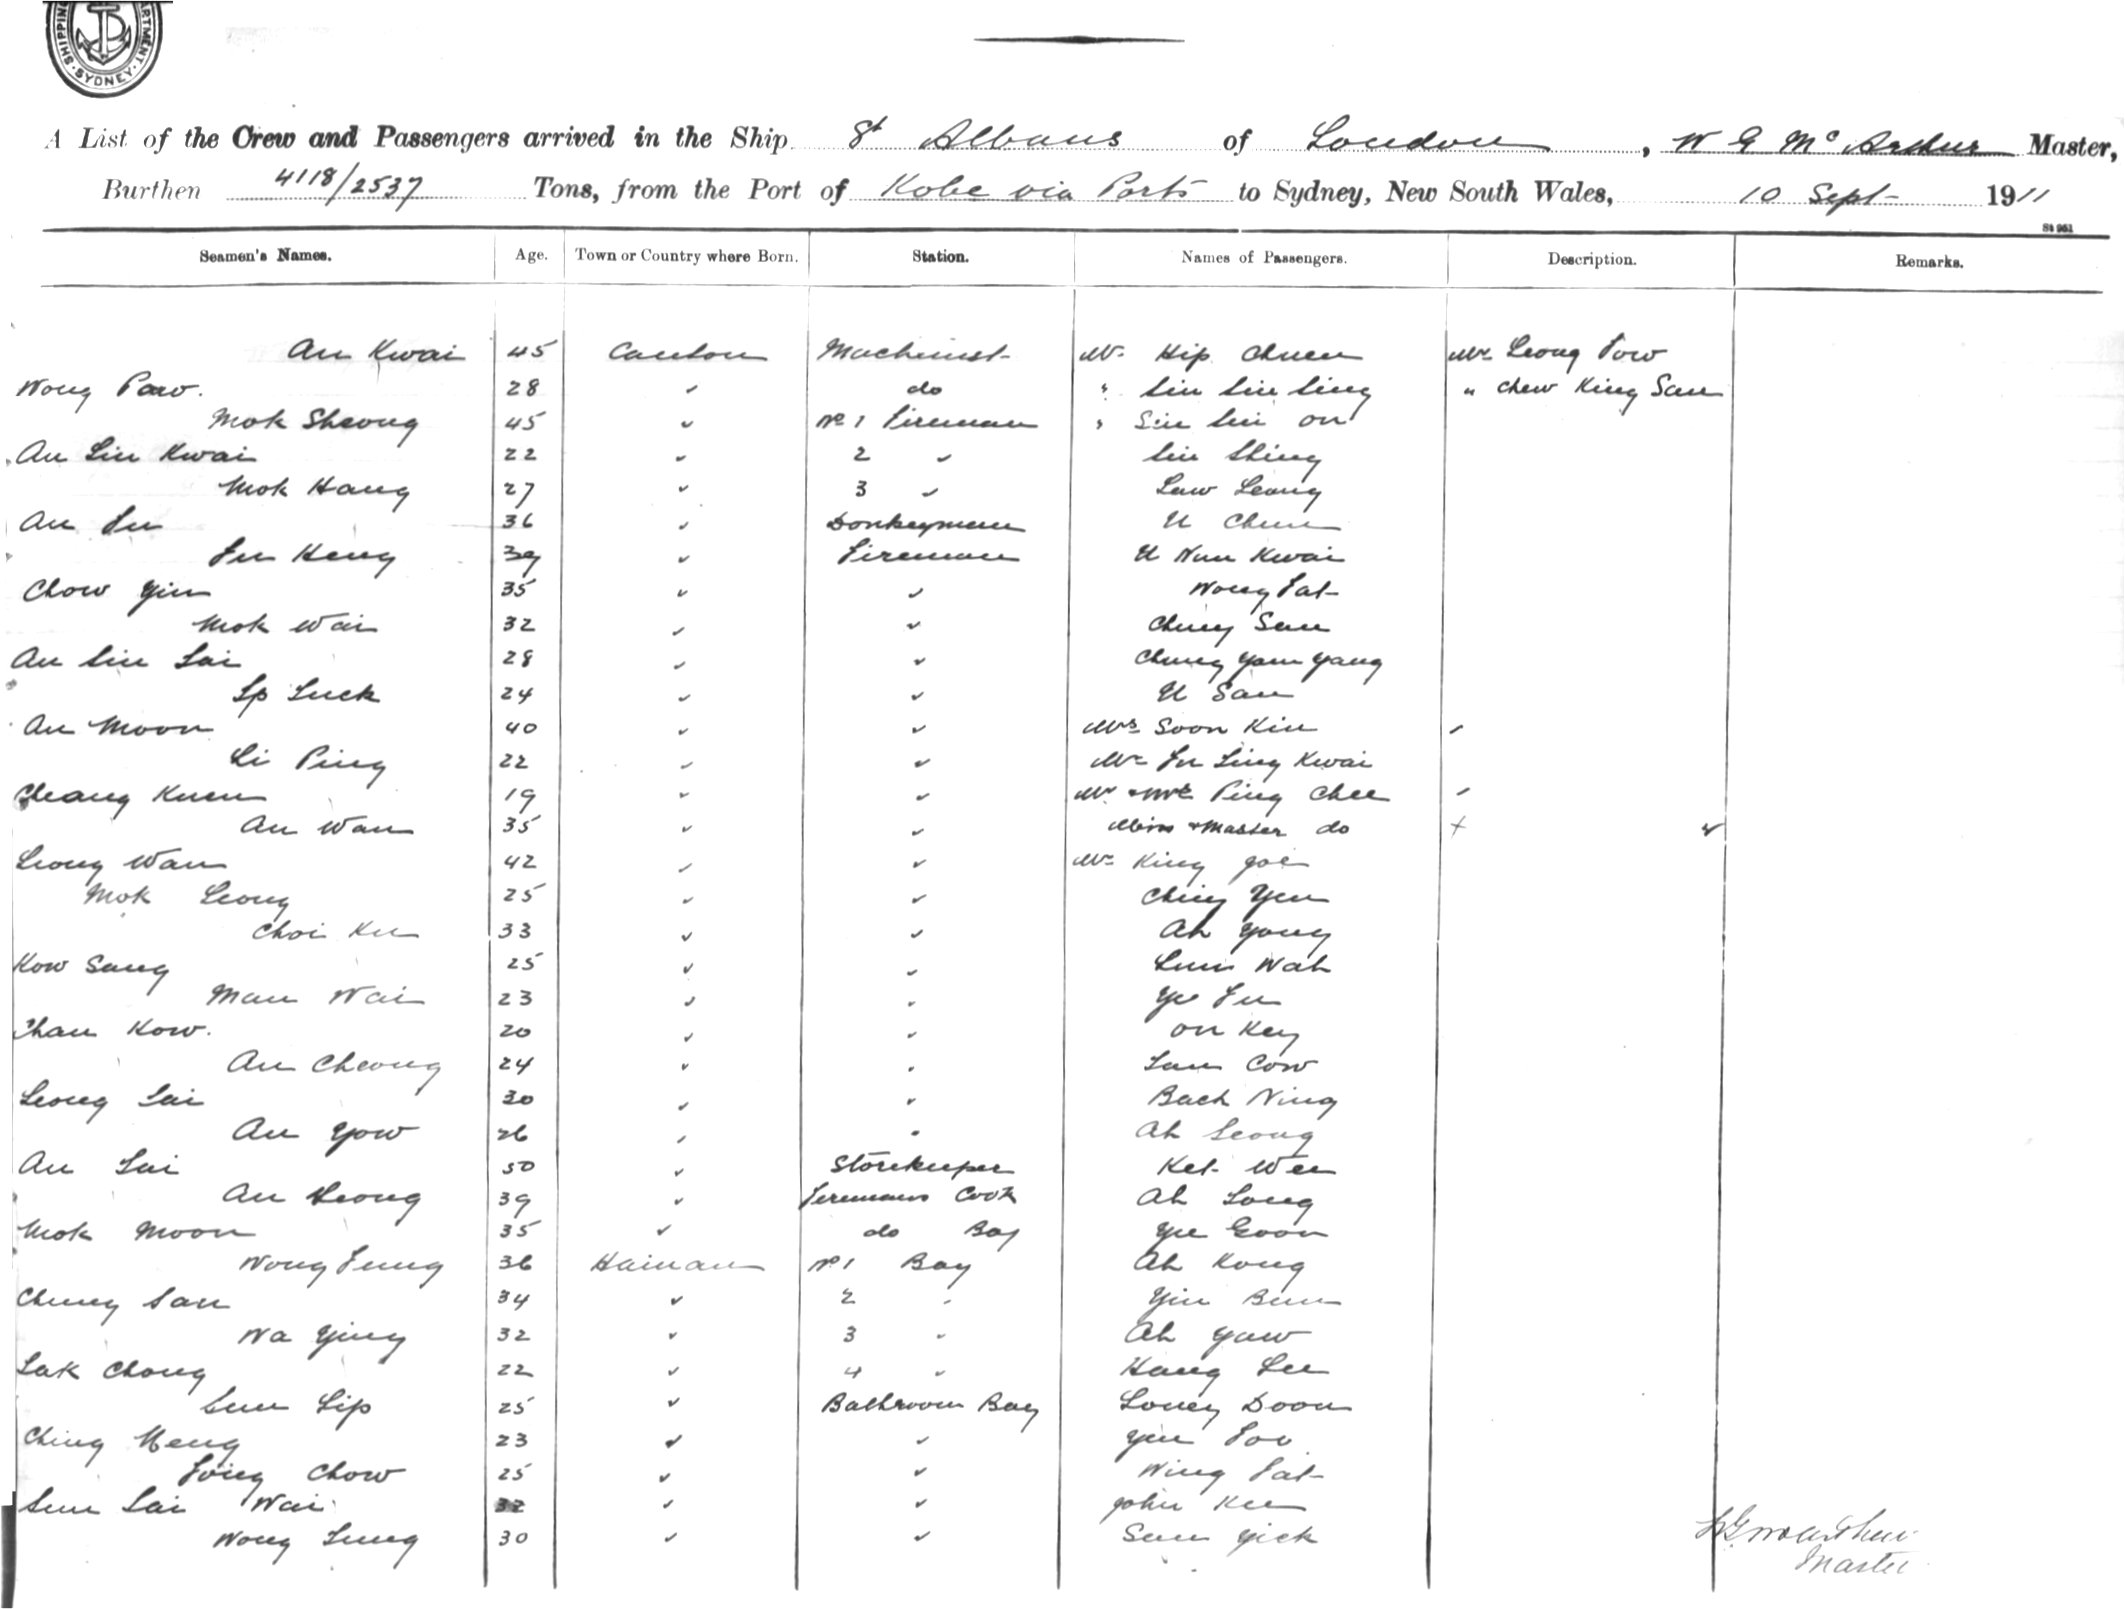 SHIPPING DEPARTMENT SYDNEY
A List of the Crew and Passengers arrived in the Ship St Albans of London, W G McArthur Master,
Burthen 4118/2537 Tons, from the Port of Kobe via Ports to Sydney, New South Wales, 10 Sept 1911
St 951
Seamen's Names. Age. Town or Country where Born. Station. Names of Passengers. Description. Remarks.
Au Kwai 45 Canton Machinist Mr Hip Chuen Mr Leong Tow
Wong Paw. 28 ✓ do " Sin Sin Sing " Chew King San
Mok Sheong 45 ✓ No 1 Fireman " Sin Sin On
Au Lin Kwai 22 ✓ 2 ✓ Sin Shing
Mok Hang 27 ✓ 3 ✓ Law Leong
Au Fu 36 ✓ Donkeyman U Chun
Fu Heng 39 ✓ Fireman U Nun Kwai
Chow Yin 35 ✓ ✓ Wong Fat
Mok Wai 32 ✓ ✓ Chung San
Au Sin Sai 28 ✓ ✓ Chung Yam Yang
Ip Luck 24 ✓ ✓ U San
Au Moon 40 ✓ ✓ Mrs Soon Kin ✓
Li Ping 22 ✓ ✓ Mr Fu Ling Kwai
Cheang Kuen 19 ✓ ✓ Mr & Mrs Ping Chee ✓
Au Wan 35 ✓ ✓ Miss & Master do + ✓
Leong Wan 42 ✓ ✓ Mr King Joe
Mok Leong 25 ✓ ✓ Ching Yen
Choi Ku 33 ✓ ✓ Ah Yong
Kow Sang 25 ✓ ✓ Lum Wah
Man Wai 23 ✓ ✓ Ye Fu
Chan Kow. 20 ✓ ✓ On Key
Au Cheong 24 ✓ ✓ Lau Cow
Leong Sai 30 ✓ ✓ Bach Ning
Au Yow 26 ✓ ✓ Ah Leong
Au Lai 50 ✓ Storekeeper Ket Wee
Au Leong 39 ✓ Firemans Cook Ah Long
Mok Moon 35 ✓ do Boy Yee Goon
Wong Fung 36 Hainan No 1 Boy Ah Kong
Chung San 34 ✓ 2 ✓ Yin Bun
Wa Ying 32 ✓ 3 ✓ Ah Yaw
Lak Chong 22 ✓ 4 ✓ Hang Lee
Sun Lip 25 ✓ Bathroom Boy Loney Doon
Ching Meng 23 ✓ ✓ Yee Foo
Fong Chow 25 ✓ ✓ Wing Fat
Sun Sai Wai 32 ✓ ✓ John Kee
Wong Lung 30 ✓ ✓ Sun Yick
W G McArthur
Master